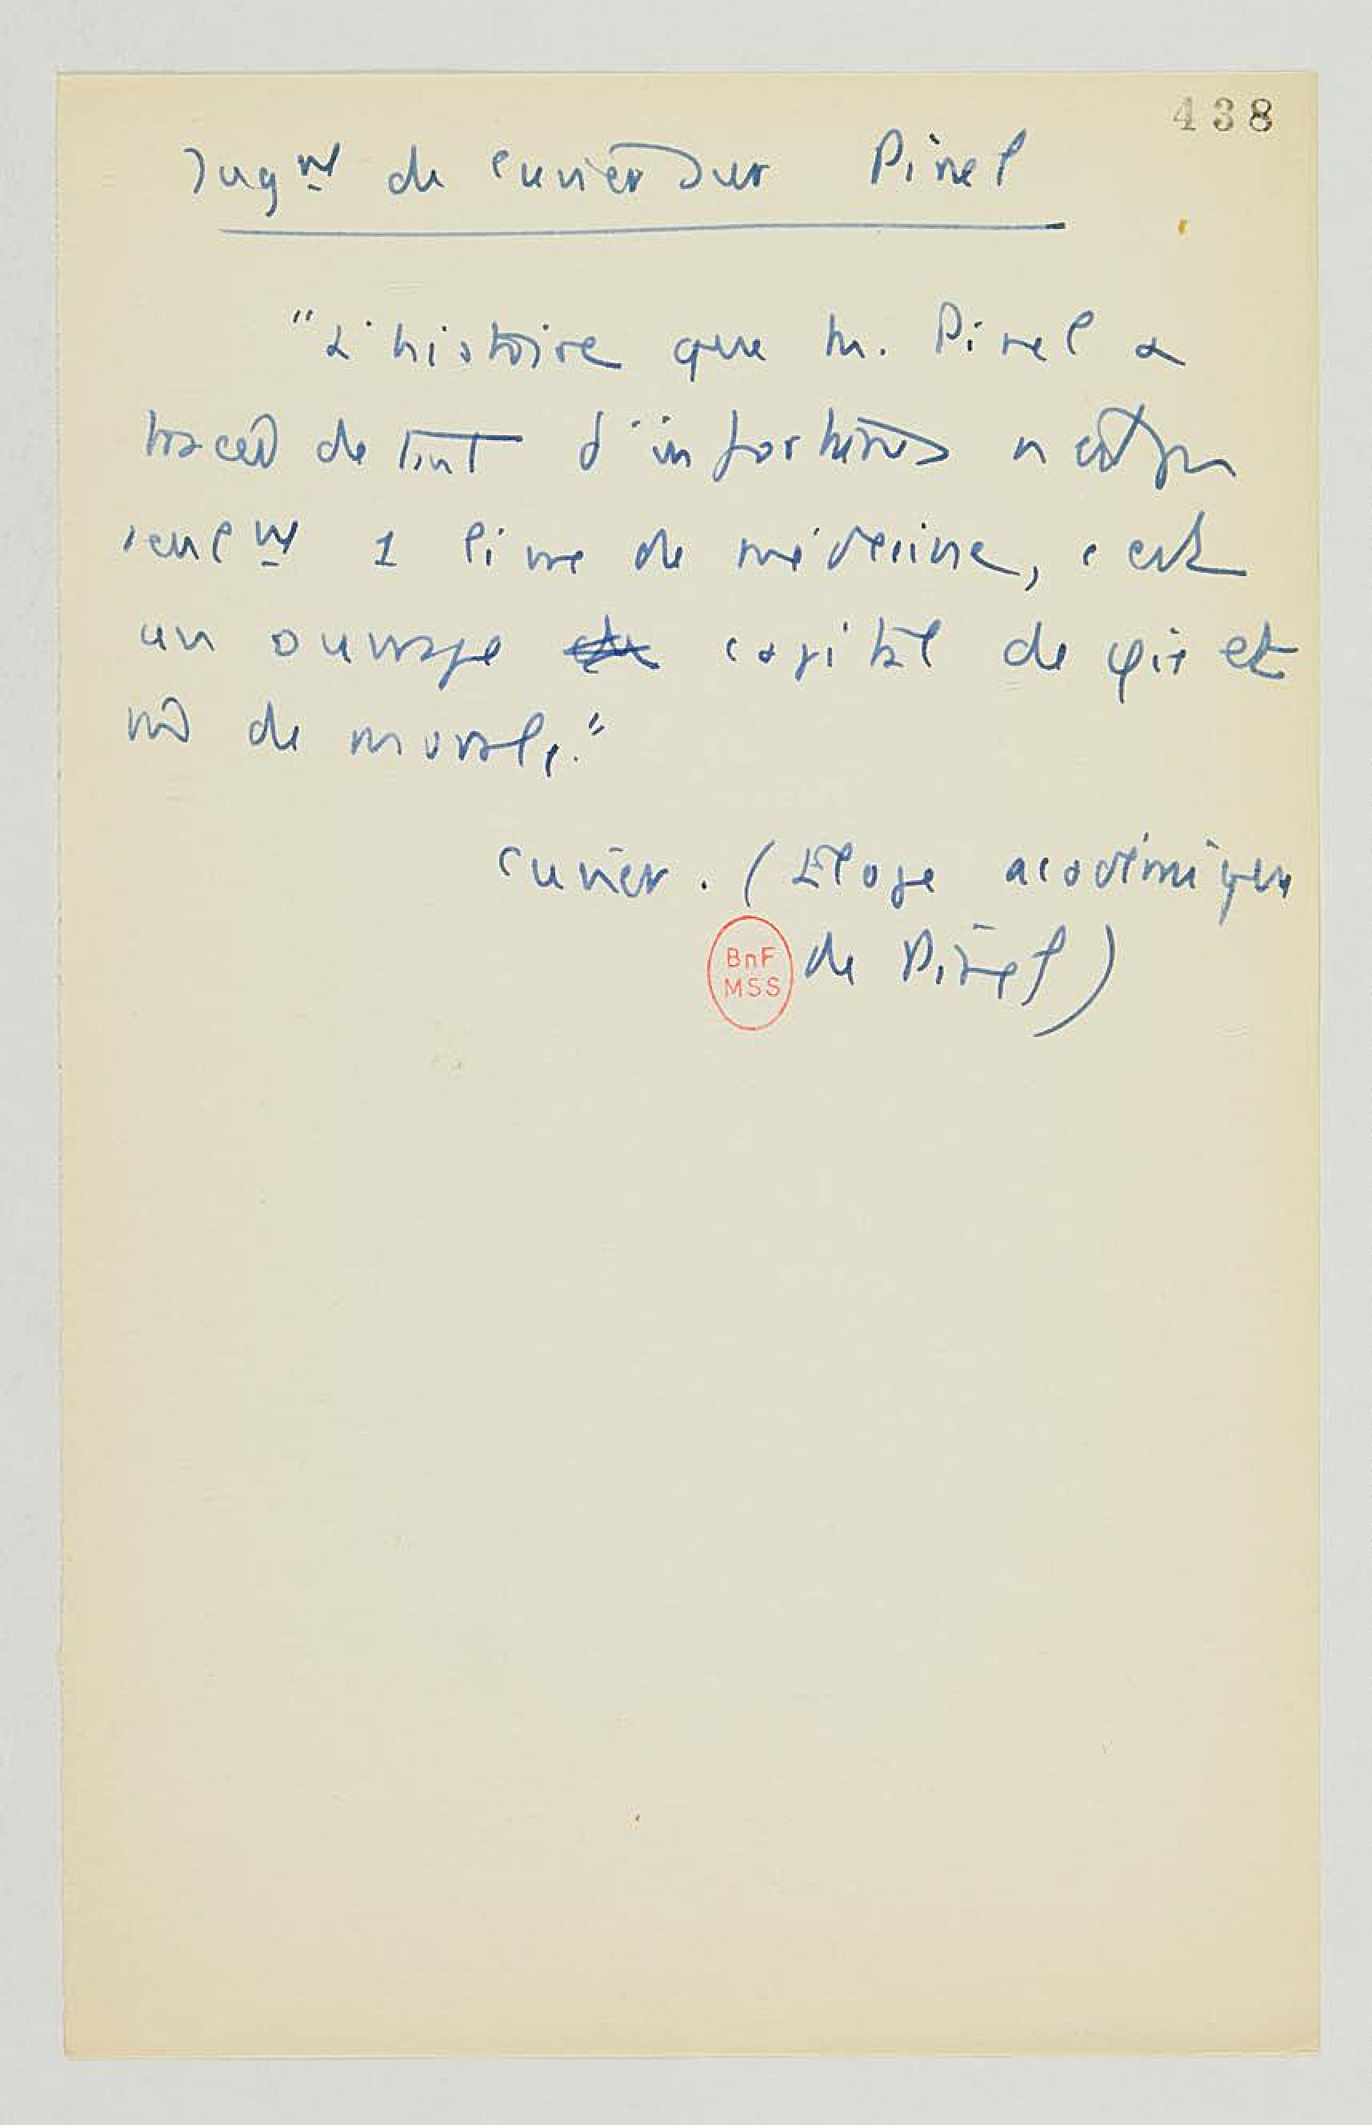 438
Jugmt de Cuvier sur Pinel
"L'histoire que M. Pinel a
tracée de tant d'infortunes n'est pas
seulmt 1 livre de médecine, c'est
un ouvrage capital de φie et
m̂ de morale."
Cuvier. (Eloge académique
de Pinel)
BnF
MSS